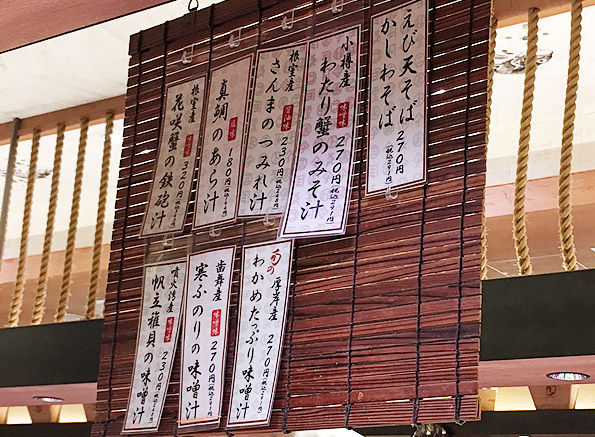 えび天そば
かしわそば 270円(税込291円)
小樽産
わたり蟹のみそ汁
味噌味
270円(税込291円)
根室産
さんまのつみれ汁
醤油味
230円
真鯛のあら汁
180円
根室産
花咲蟹の鉄砲汁
味噌味
320円
旬の
厚岸産
わかめたっぷり味噌汁
270円(税込291円)
歯舞産
寒ふのりの味噌汁
味噌味
270円(税込291円)
噴火湾産
帆立稚貝の味噌汁
味噌味
230円